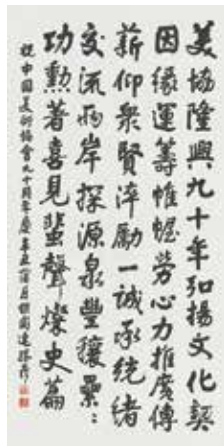 美協隆興九十年弘揚文化契
因緣運籌帷幄勞心力推廣傳
薪仰眾賢淬勵一誠承統緒
交流兩岸探源泉豐穰纍纍
功勳著喜見蜚聲燦史篇
祝中國美術協會九十周年慶